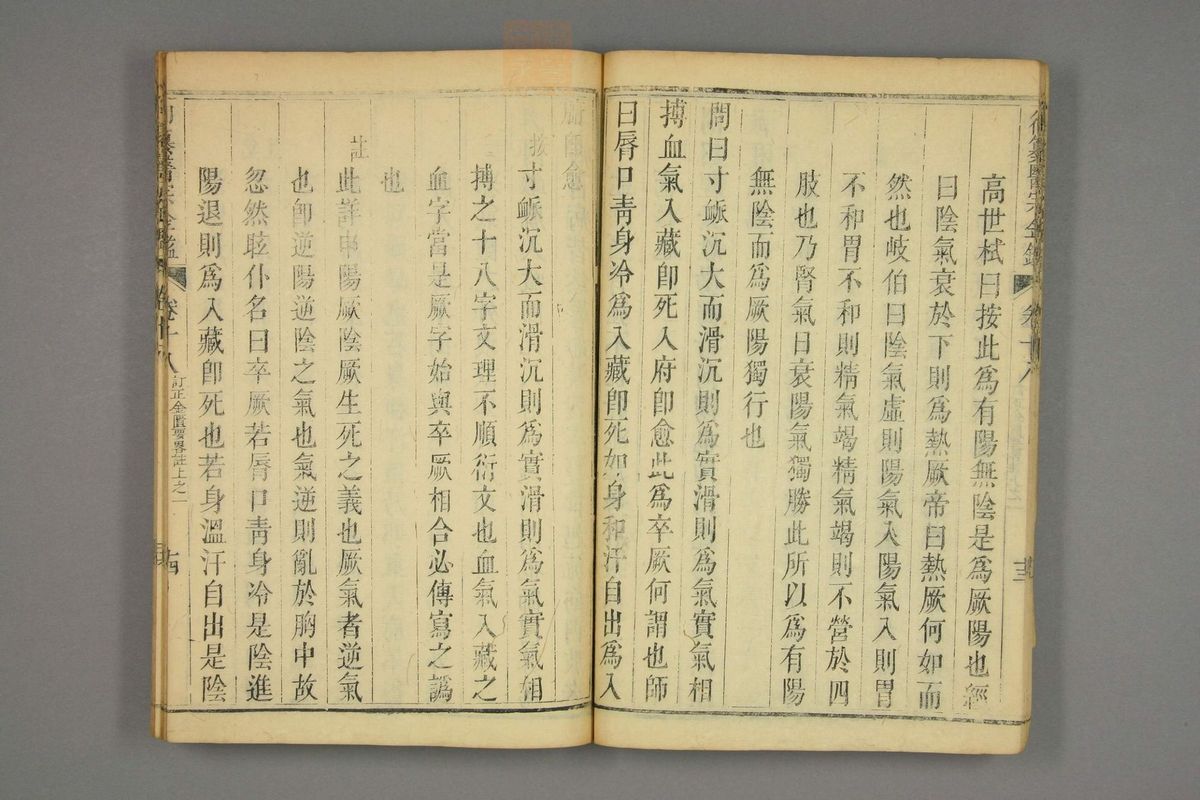 御纂醫宗金鑑 卷十八 十三
高世栻曰按此為有陽無陰是為厥陽也經
曰陰氣衰於下則為熱厥帝曰熱厥何如而
然也岐伯曰陰氣虛則陽氣入陽氣入則胃
不和胃不和則精氣竭精氣竭則不營於四
肢也乃腎氣日衰陽氣獨勝此所以為有陽
無陰而為厥陽獨行也
問曰寸衇沉大而滑沉則為實滑則為氣實氣相
搏血氣入藏即死入府即愈此為卒厥何謂也師
曰脣口青身冷為入藏即死如身和汗自出為入
府即愈
按寸衇沉大而滑沉則為實滑則為氣實氣相
搏之十八字文理不順衍文也血氣入藏之
血字當是厥字始與卒厥相合必傳寫之譌
也
註此詳申陽厥陰厥生死之義也厥氣者逆氣
也即逆陽逆陰之氣也氣逆則亂於胸中故
忽然眩仆名曰卒厥若脣口青身冷是陰進
陽退則為入藏即死也若身溫汗自出是陰
御纂醫宗金鑑 卷十八 訂正金匱要畧註上之一 十四